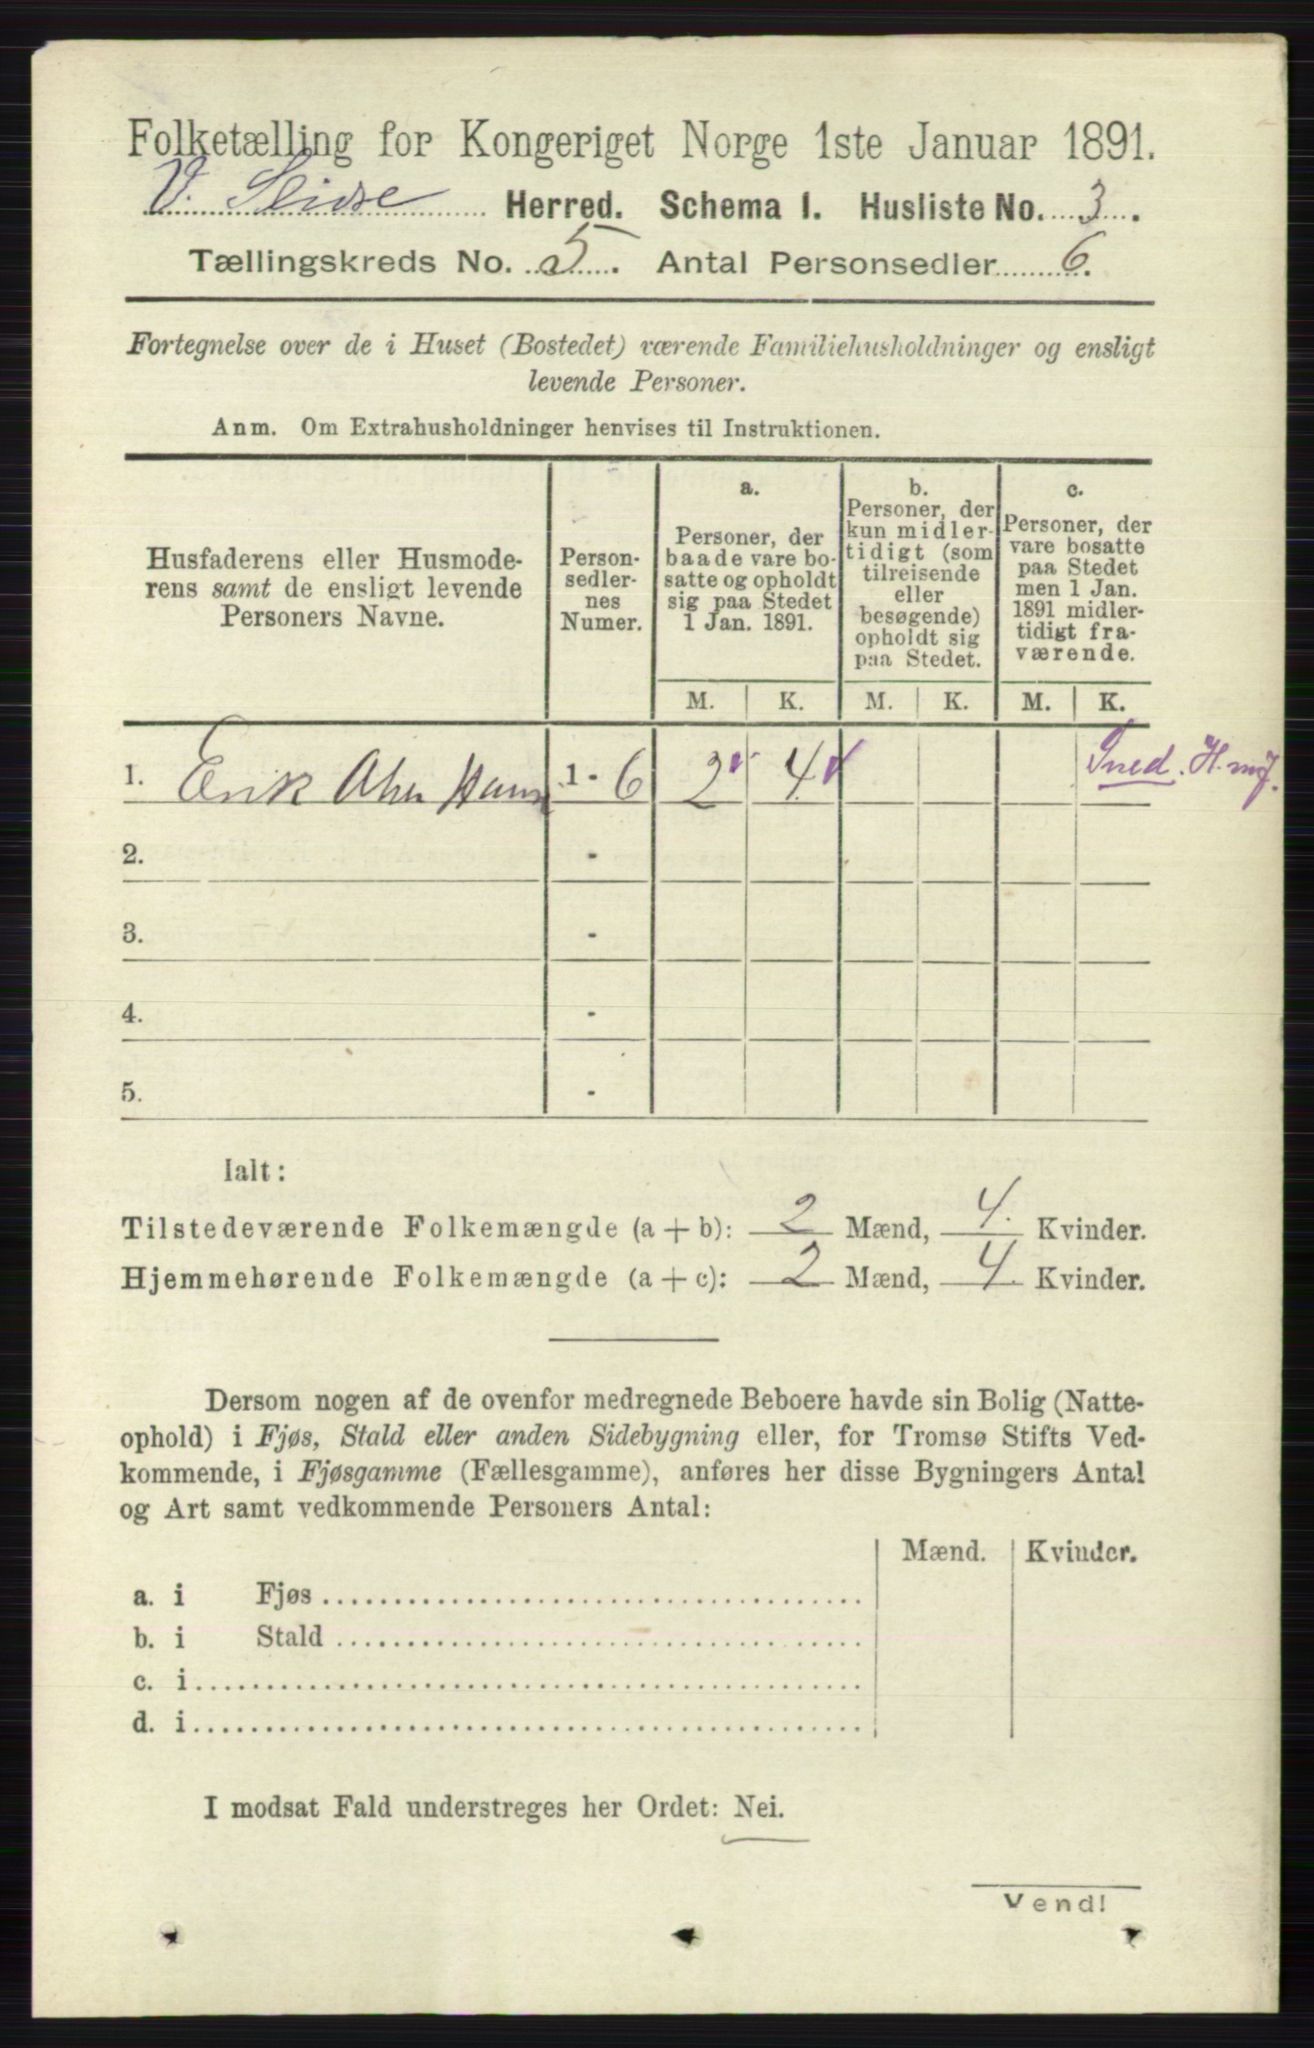 Folketælling for Kongeriget Norge 1ste Januar 1891.
V. Slidre Herred. Schema 1. Husliste No. 3.
Tællingskreds No. 5. Antal Personsedler 6.
Fortegnelse over de i Huset (Bostedet) værende Familiehusholdninger og ensligt
levende Personer.
Anm. Om Extrahusholdninger henvises til Instruktionen.
Husfaderens eller Husmode-
rens samt de ensligt levende
Personers Navne.
Person-
sedler-
nes
Numer.
a.
Personer, der
baade vare bo-
satte og opholdt
sig paa Stedet
1 Jan. 1891.
b.
Personer, der
kun midler-
tidigt (som
tilreisende
eller
besøgende)
opholdt sig
paa Stedet.
c.
Personer, der
vare bosatte
paa Stedet
men 1 Jan.
1891 midler-
tidigt fra-
værende.
M. K. M. K. M. K.
1. Erik 1 - 6 2 4
2. -
3. -
4. -
5. -
Ialt:
Tilstedeværende Folkemængde (a + b): 2 Mænd, 4. Kvinder.
Hjemmehørende Folkemængde (a + c): 2 Mænd, 4 Kvinder.
Dersom nogen af de ovenfor medregnede Beboere havde sin Bolig (Natte-
ophold) i Fjøs, Stald eller anden Sidebygning eller, for Tromsø Stifts Ved-
kommende, i Fjøsgamme (Fællesgamme), anføres her disse Bygningers Antal
og Art samt vedkommende Personers Antal:
Mænd. Kvinder.
a. i Fjøs
b. i Stald
c. i
d. i
I modsat Fald understreges her Ordet: Nei.
Vend!